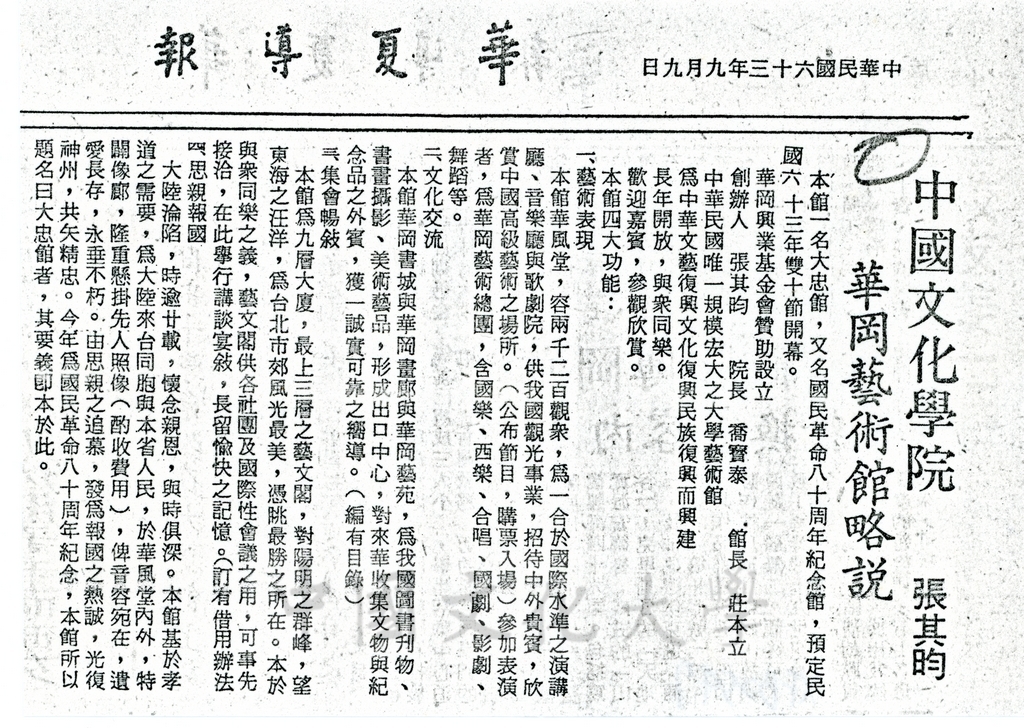 華夏導報
中華民國六十三年九月九日
中國文化學院
華岡藝術館略説
張其昀
本館一名大忠館，又名國民革命八十周年紀念館，預定民
國六十三年雙十節開幕。
華岡興業基金會贊助設立
創辦人　張其昀　院長　喬寶泰　館長　莊本立
中華民國唯一規模宏大之大學藝術館
爲中華文藝復興文化復興民族復興而興建
長年開放，與衆同樂。
歡迎嘉賓，參觀欣賞。
本館四大功能：
一、藝術表現
本館華風堂，容兩千二百觀衆，爲一合於國際水準之演講
廳、音樂廳與歌劇院，供我國觀光事業，招待中外貴賓，欣
賞中國高級藝術之場所。（公布節目，購票入場）參加表演
者，爲華岡藝術總團，含國樂、西樂、合唱、國劇、影劇、
舞蹈等。
二、文化交流
本館華岡書城與華岡畫廊與華岡藝苑，爲我國圖書刊物、
書畫攝影、美術藝品，形成出口中心，對來華收集文物與紀
念品之外賓，獲一誠實可靠之嚮導。（編有目錄）
三、集會暢敍
本館爲九層大廈，最上三層之藝文閣，對陽明之群峰，望
東海之汪洋，爲台北市郊風光最美，憑眺最勝之所在。本於
與衆同樂之義，藝文閣供各社團及國際性會議之用，可事先
接洽，在此舉行講談宴敍，長留愉快之記憶。（訂有借用辦法
四、思親報國
大陸淪陷，時逾廿載，懷念親恩，與時俱深。本館基於孝
道之需要，爲大陸來台同胞與本省人民，於華風堂內外，特
闢像廊，隆重懸掛先人照像（酌收費用），俾音容宛在，遺
愛長存，永垂不朽。由思親之追慕，發爲報國之熱誠，光復
神州，共矢精忠。今年爲國民革命八十周年紀念，本館所以
題名曰大忠館者，其要義卽本於此。
中國文化大學